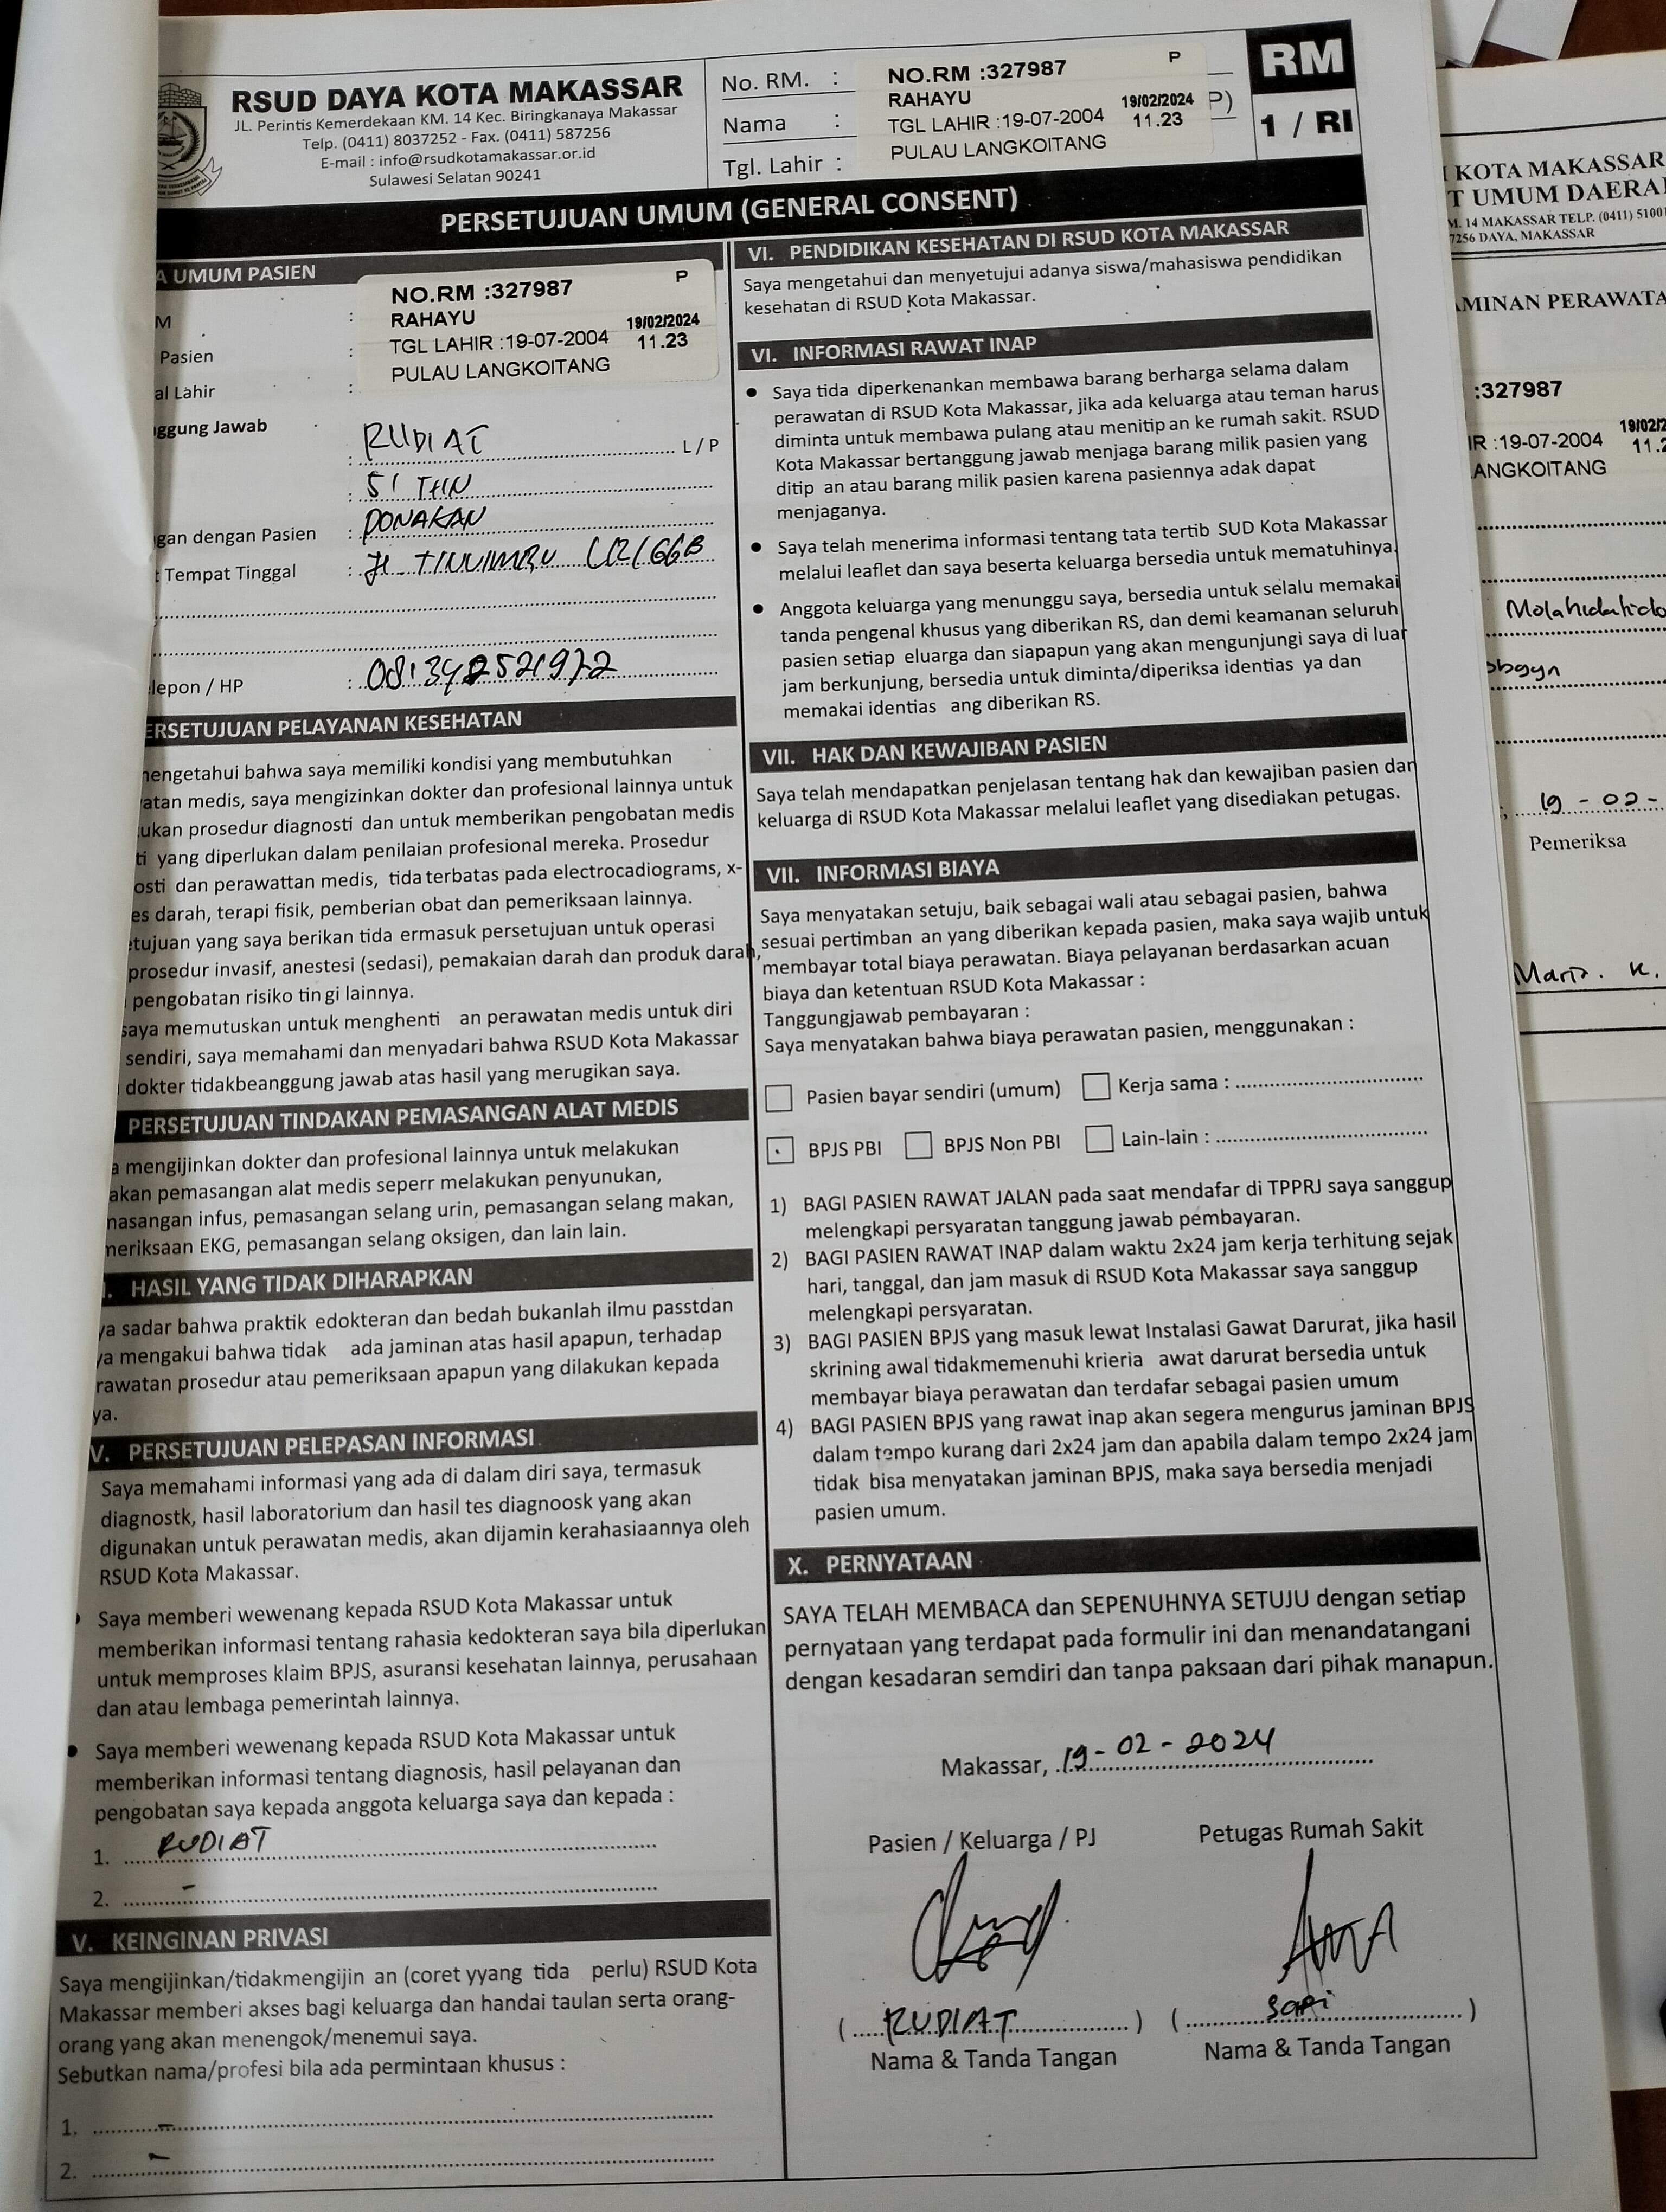 RSUD DAYA KOTA MAKASSAR
JL. Perintis Kemerdekaan KM. 14 Kec. Biringkanaya Makassar
Telp. (0411) 8037252 - Fax. (0411) 587256
E-mail : info@rsudkotamakassar.or.id
Sulawesi Selatan 90241
No. RM. :
Nama :
Tgl. Lahir :
NO.RM :327987 P
RAHAYU 19/02/2024
TGL LAHIR :19-07-2004 11.23
PULAU LANGKOITANG
P)
RM
1 / RI
PERSETUJUAN UMUM (GENERAL CONSENT)
A UMUM PASIEN
M :
Pasien :
al Lahir :
NO.RM :327987 P
RAHAYU 19/02/2024
TGL LAHIR :19-07-2004 11.23
PULAU LANGKOITANG
ggung Jawab
: RUDIAT L / P
: 51 THN
gan dengan Pasien : PONAKAN
Tempat Tinggal : Jl.
lepon / HP :
ERSETUJUAN PELAYANAN KESEHATAN
mengetahui bahwa saya memiliki kondisi yang membutuhkan
atan medis, saya mengizinkan dokter dan profesional lainnya untuk
ukan prosedur diagnosti dan untuk memberikan pengobatan medis
ti yang diperlukan dalam penilaian profesional mereka. Prosedur
osti dan perawattan medis, tida terbatas pada electrocadiograms, x-
es darah, terapi fisik, pemberian obat dan pemeriksaan lainnya.
etujuan yang saya berikan tida ermasuk persetujuan untuk operasi
prosedur invasif, anestesi (sedasi), pemakaian darah dan produk darah,
pengobatan risiko tin gi lainnya.
saya memutuskan untuk menghenti an perawatan medis untuk diri
sendiri, saya memahami dan menyadari bahwa RSUD Kota Makassar
dokter tidakbeanggung jawab atas hasil yang merugikan saya.
PERSETUJUAN TINDAKAN PEMASANGAN ALAT MEDIS
a mengijinkan dokter dan profesional lainnya untuk melakukan
akan pemasangan alat medis seperr melakukan penyunukan,
nasangan infus, pemasangan selang urin, pemasangan selang makan,
meriksaan EKG, pemasangan selang oksigen, dan lain lain.
I. HASIL YANG TIDAK DIHARAPKAN
ya sadar bahwa praktik edokteran dan bedah bukanlah ilmu passtdan
ya mengakui bahwa tidak ada jaminan atas hasil apapun, terhadap
rawatan prosedur atau pemeriksaan apapun yang dilakukan kepada
ya.
V. PERSETUJUAN PELEPASAN INFORMASI
Saya memahami informasi yang ada di dalam diri saya, termasuk
diagnostk, hasil laboratorium dan hasil tes diagnoosk yang akan
digunakan untuk perawatan medis, akan dijamin kerahasiaannya oleh
RSUD Kota Makassar.
Saya memberi wewenang kepada RSUD Kota Makassar untuk
memberikan informasi tentang rahasia kedokteran saya bila diperlukan
untuk memproses klaim BPJS, asuransi kesehatan lainnya, perusahaan
dan atau lembaga pemerintah lainnya.
• Saya memberi wewenang kepada RSUD Kota Makassar untuk
memberikan informasi tentang diagnosis, hasil pelayanan dan
pengobatan saya kepada anggota keluarga saya dan kepada :
1. RUDIAT
2. -
V. KEINGINAN PRIVASI
Saya mengijinkan/tidakmengijin an (coret yyang tida perlu) RSUD Kota
Makassar memberi akses bagi keluarga dan handai taulan serta orang-
orang yang akan menengok/menemui saya.
Sebutkan nama/profesi bila ada permintaan khusus :
1. -
2. -
VI. PENDIDIKAN KESEHATAN DI RSUD KOTA MAKASSAR
Saya mengetahui dan menyetujui adanya siswa/mahasiswa pendidikan
kesehatan di RSUD Kota Makassar.
VI. INFORMASI RAWAT INAP
• Saya tida diperkenankan membawa barang berharga selama dalam
perawatan di RSUD Kota Makassar, jika ada keluarga atau teman harus
diminta untuk membawa pulang atau menitip an ke rumah sakit. RSUD
Kota Makassar bertanggung jawab menjaga barang milik pasien yang
ditip an atau barang milik pasien karena pasiennya adak dapat
menjaganya.
• Saya telah menerima informasi tentang tata tertib SUD Kota Makassar
melalui leaflet dan saya beserta keluarga bersedia untuk mematuhinya.
• Anggota keluarga yang menunggu saya, bersedia untuk selalu memakai
tanda pengenal khusus yang diberikan RS, dan demi keamanan seluruh
pasien setiap eluarga dan siapapun yang akan mengunjungi saya di luar
jam berkunjung, bersedia untuk diminta/diperiksa identias ya dan
memakai identias ang diberikan RS.
VII. HAK DAN KEWAJIBAN PASIEN
Saya telah mendapatkan penjelasan tentang hak dan kewajiban pasien dan
keluarga di RSUD Kota Makassar melalui leaflet yang disediakan petugas.
VII. INFORMASI BIAYA
Saya menyatakan setuju, baik sebagai wali atau sebagai pasien, bahwa
sesuai pertimban an yang diberikan kepada pasien, maka saya wajib untuk
membayar total biaya perawatan. Biaya pelayanan berdasarkan acuan
biaya dan ketentuan RSUD Kota Makassar :
Tanggungjawab pembayaran :
Saya menyatakan bahwa biaya perawatan pasien, menggunakan :
Pasien bayar sendiri (umum) Kerja sama :
BPJS PBI BPJS Non PBI Lain-lain :
1) BAGI PASIEN RAWAT JALAN pada saat mendafar di TPPRJ saya sanggup
melengkapi persyaratan tanggung jawab pembayaran.
2) BAGI PASIEN RAWAT INAP dalam waktu 2x24 jam kerja terhitung sejak
hari, tanggal, dan jam masuk di RSUD Kota Makassar saya sanggup
melengkapi persyaratan.
3) BAGI PASIEN BPJS yang masuk lewat Instalasi Gawat Darurat, jika hasil
skrining awal tidakmemenuhi krieria awat darurat bersedia untuk
membayar biaya perawatan dan terdafar sebagai pasien umum
4) BAGI PASIEN BPJS yang rawat inap akan segera mengurus jaminan BPJS
dalam tempo kurang dari 2x24 jam dan apabila dalam tempo 2x24 jam
tidak bisa menyatakan jaminan BPJS, maka saya bersedia menjadi
pasien umum.
X. PERNYATAAN
SAYA TELAH MEMBACA dan SEPENUHNYA SETUJU dengan setiap
pernyataan yang terdapat pada formulir ini dan menandatangani
dengan kesadaran semdiri dan tanpa paksaan dari pihak manapun.
Makassar, 19-02-2024
Pasien / Keluarga / PJ Petugas Rumah Sakit
( RUDIAT ) ( sapi )
Nama & Tanda Tangan Nama & Tanda Tangan
KOTA MAKASSAR
T UMUM DAERA
M. 14 MAKASSAR TELP. (0411) 5100
7256 DAYA, MAKASSAR
MINAN PERAWATA
:327987
19/02/2
IR :19-07-2004 11.2
ANGKOITANG
obgyn
19 - 02 -
Pemeriksa
K.